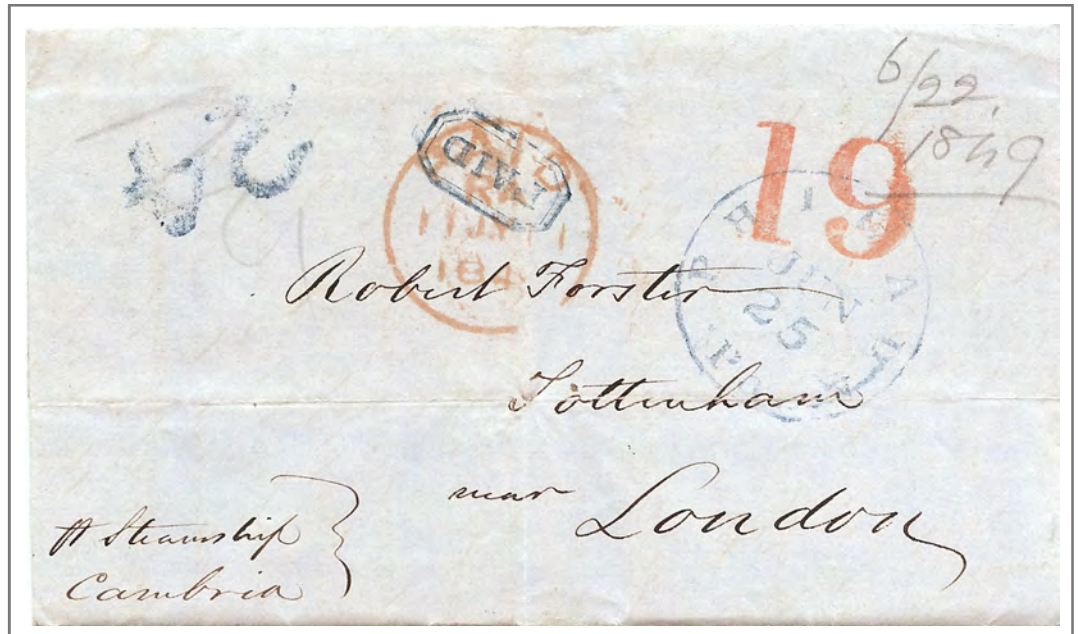 6/22,
1849
24
PAID
19
PHILADELPHIA
JUN
25
Robert Forster
Tottenham
near
London
Steamship
Cambria